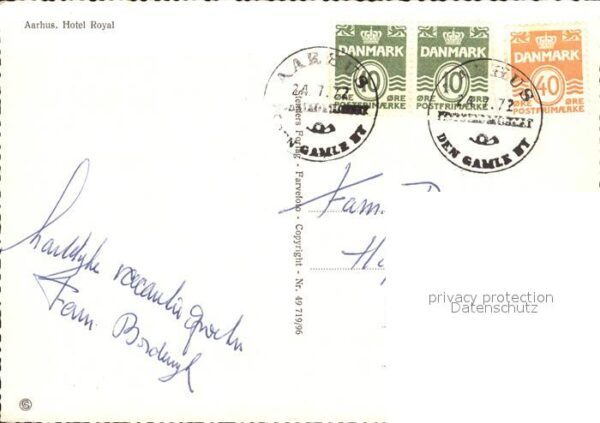 Aarhus. Hotel Royal
DANMARK
10
ØRE
POSTFRIMÆRKE
DANMARK
10
ØRE
POSTFRIMÆRKE
DANMARK
40
ØRE
POSTFRIMÆRKE
AARHUS
24.7.72
DEN GAMLE BY
AARHUS
24.7.72
DEN GAMLE BY
Stenders Forlag - Farvefoto - Copyright - Nr. 49 719/96
Hartelijke vacantie groeten
Fam.
Fam.
privacy protection
Datenschutz